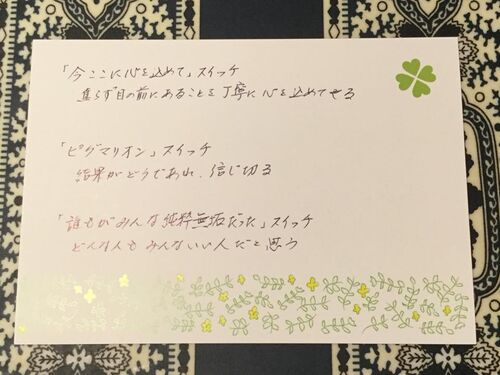 「今ここに心を込めて」スイッチ
焦らず目の前にあることを丁寧に心を込めてする
「ピグマリオン」スイッチ
結果がどうであれ、信じ切る
「誰もがみんな純粋無垢だった」スイッチ
どんな人もみんないい人だと思う